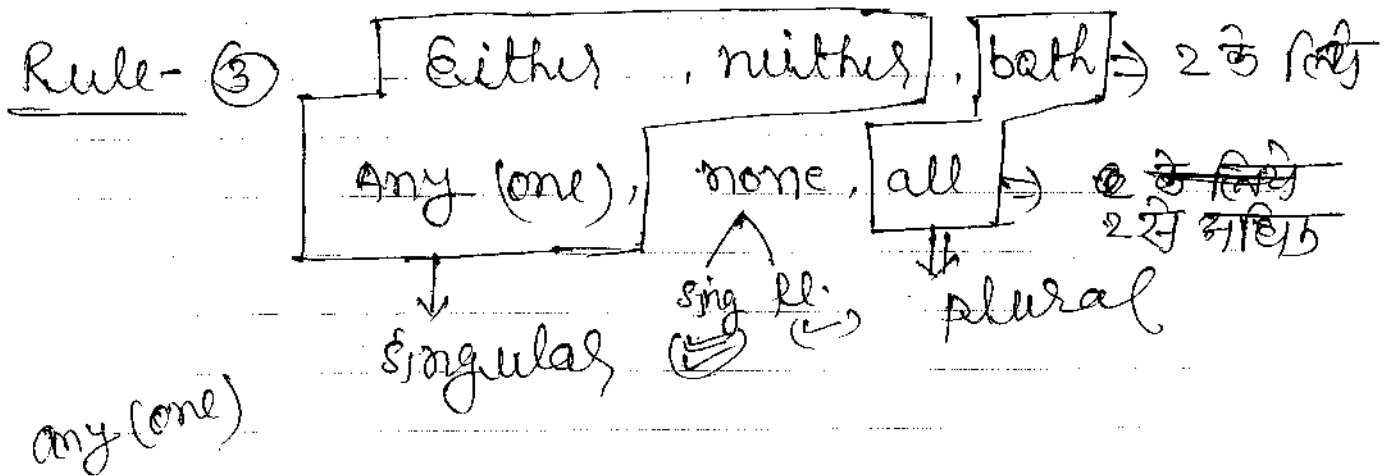 Rule- ③ Either, neither, both ⇒ 2 के लिये
Any (one), none, all ⇒ 2 के लिये
2 से अधिक
sing Pl.
singular (✓) plural
any (one)